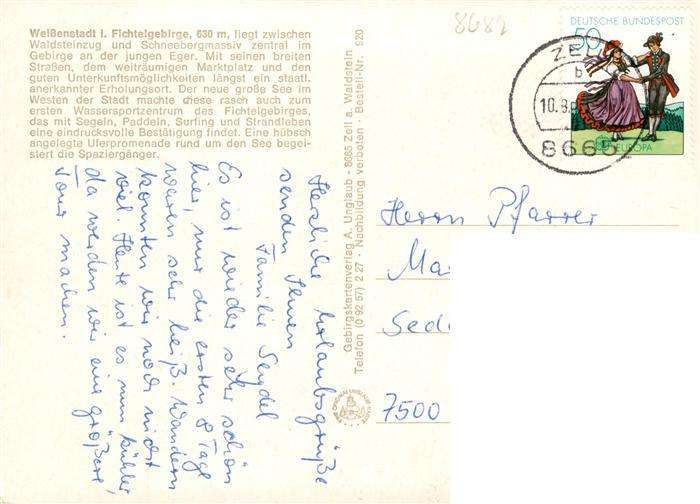 Weißenstadt i. Fichtelgebirge, 630 m, liegt zwischen
Waldsteinzug und Schneebergmassiv zentral im
Gebirge an der jungen Eger. Mit seinen breiten
Straßen, dem weiträumigen Marktplatz und den
guten Unterkunftsmöglichkeiten längst ein staatl.
anerkannter Erholungsort. Der neue große See im
Westen der Stadt machte diese rasch auch zum
ersten Wassersportzentrum des Fichtelgebirges,
das mit Segeln, Paddeln, Surfing und Strandleben
eine eindrucksvolle Bestätigung findet. Eine hübsch
angelegte Uferpromenade rund um den See begei-
stert die Spaziergänger.
Herzliche Urlaubsgrüße
senden Ihnen
Familie Seydel
Es ist wieder sehr schön
hier, nur die ersten 8 Tage
waren sehr heiß. Wandern
konnten wir noch nicht
viel. Heute ist es nun kühler
da werden wir eine größere
Tour machen.
Gebirgskartenverlag A. Unglaub - 8665 Zell a. Waldstein
Telefon (0 92 57) 2 27 · Nachbildung verboten · Bestell-Nr. 920
8682
DEUTSCHE BUNDESPOST
50
EUROPA
ZELL
b
10.9.
8665
Herrn Pfarrer
Ma
Sed
7500